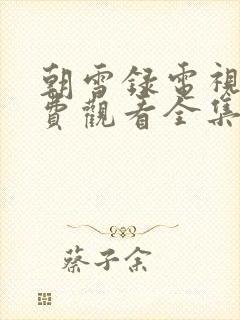 朝雪錄電視
費觀看全集
蔡子余